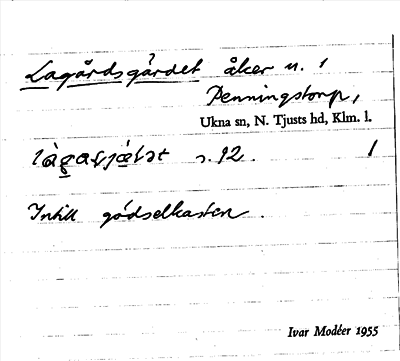 Lagårdsgärdet åker n. 1
Penningstorp,
Ukna sn, N. Tjusts hd, Klm. l.
s. 92. 1
Intill gödselkasten.
Ivar Modéer 1955